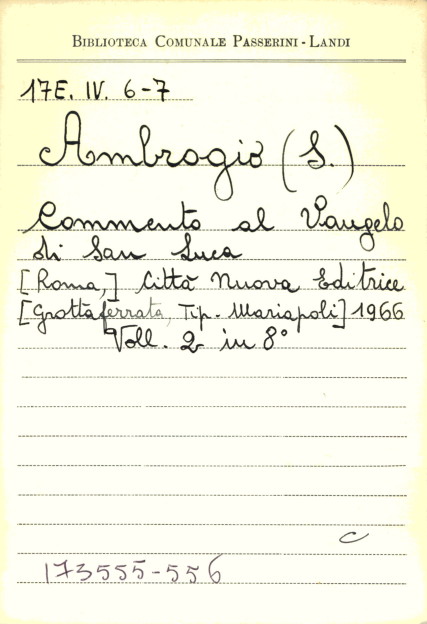 BIBLIOTECA COMUNALE PASSERINI - LANDI
17E. IV. 6-7
Ambrogio (S.)
Commento al Vangelo
di San Luca
[Roma,] Città Nuova Editrice
[Grottaferrata, Tip. Mariapoli] 1966
Voll. 2 in 8°
C
173555-556